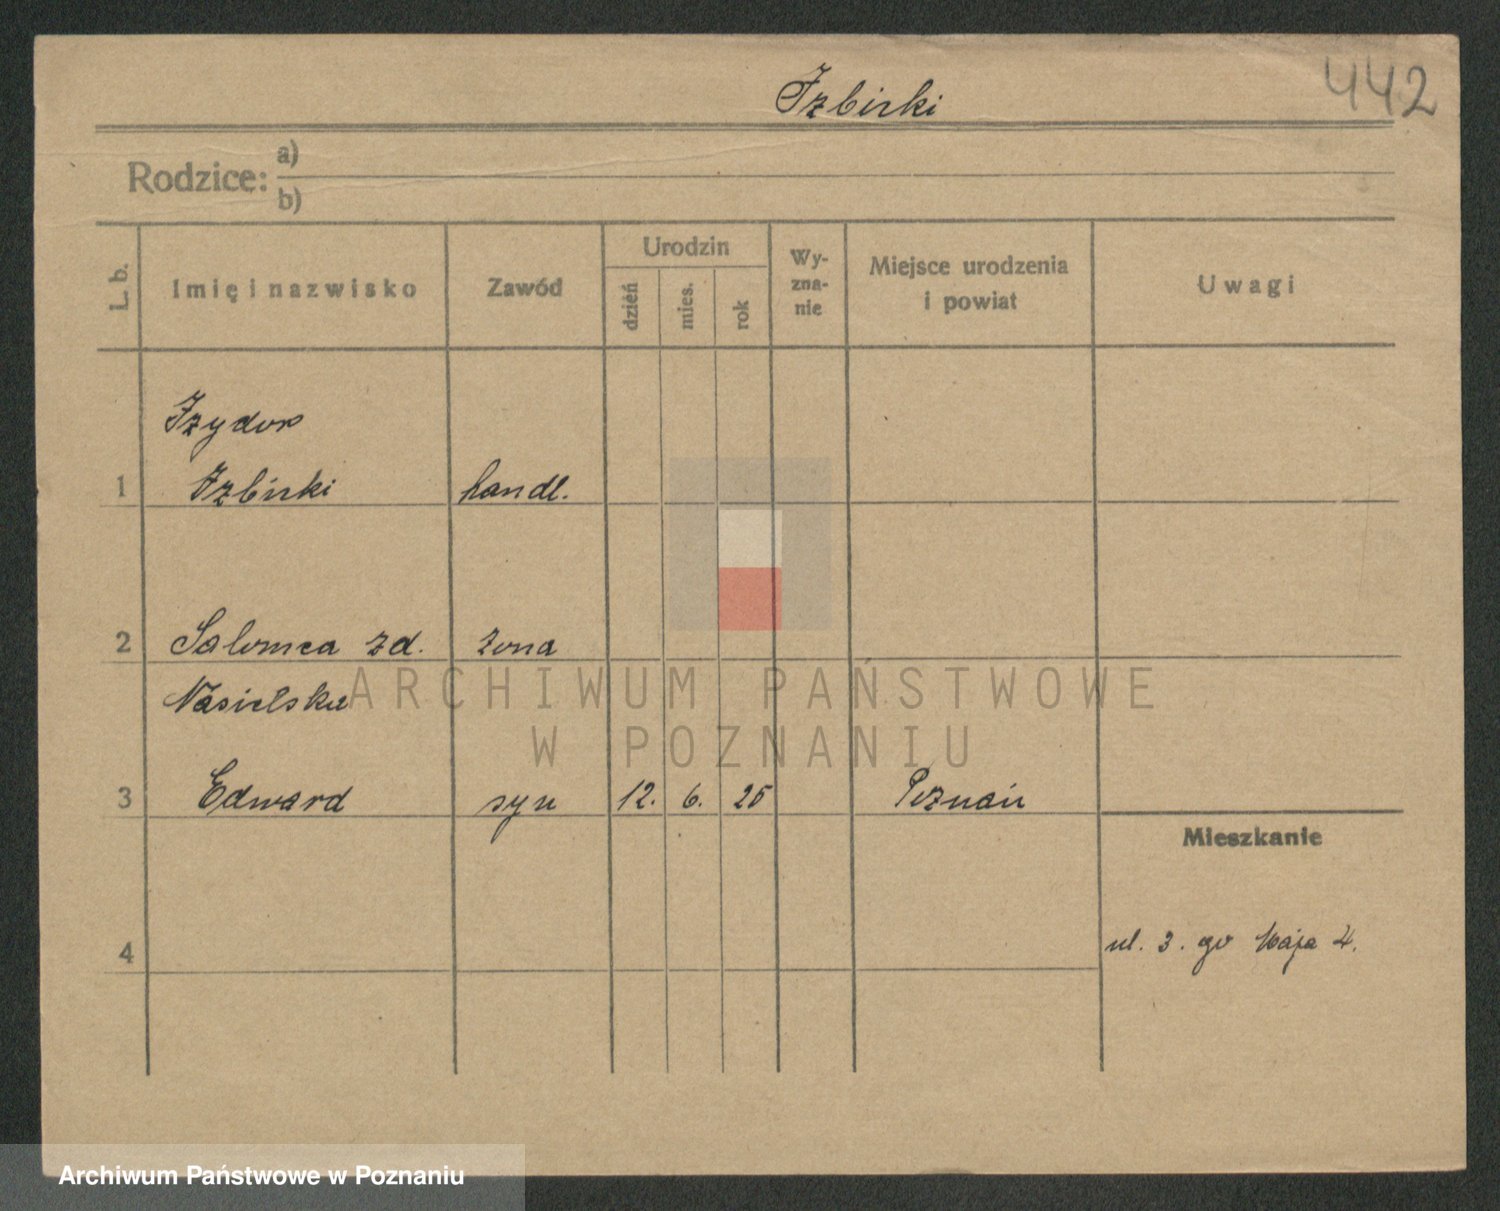 Izbicki
442
Rodzice: a)
b)
L. b.
Imię i nazwisko
Zawód
Urodzin
dzień
mies.
rok
Wy-
zna-
nie
Miejsce urodzenia
i powiat
Uwagi
Izydor
1 Izbicki handl.
2 Salomea zd. żona
Nasielska
ARCHIWUM PAŃSTWOWE
W POZNANIU
3 Edward syn 12. 6. 25 Poznań
Mieszkanie
4
ul. 3. go Maja 4.
Archiwum Państwowe w Poznaniu